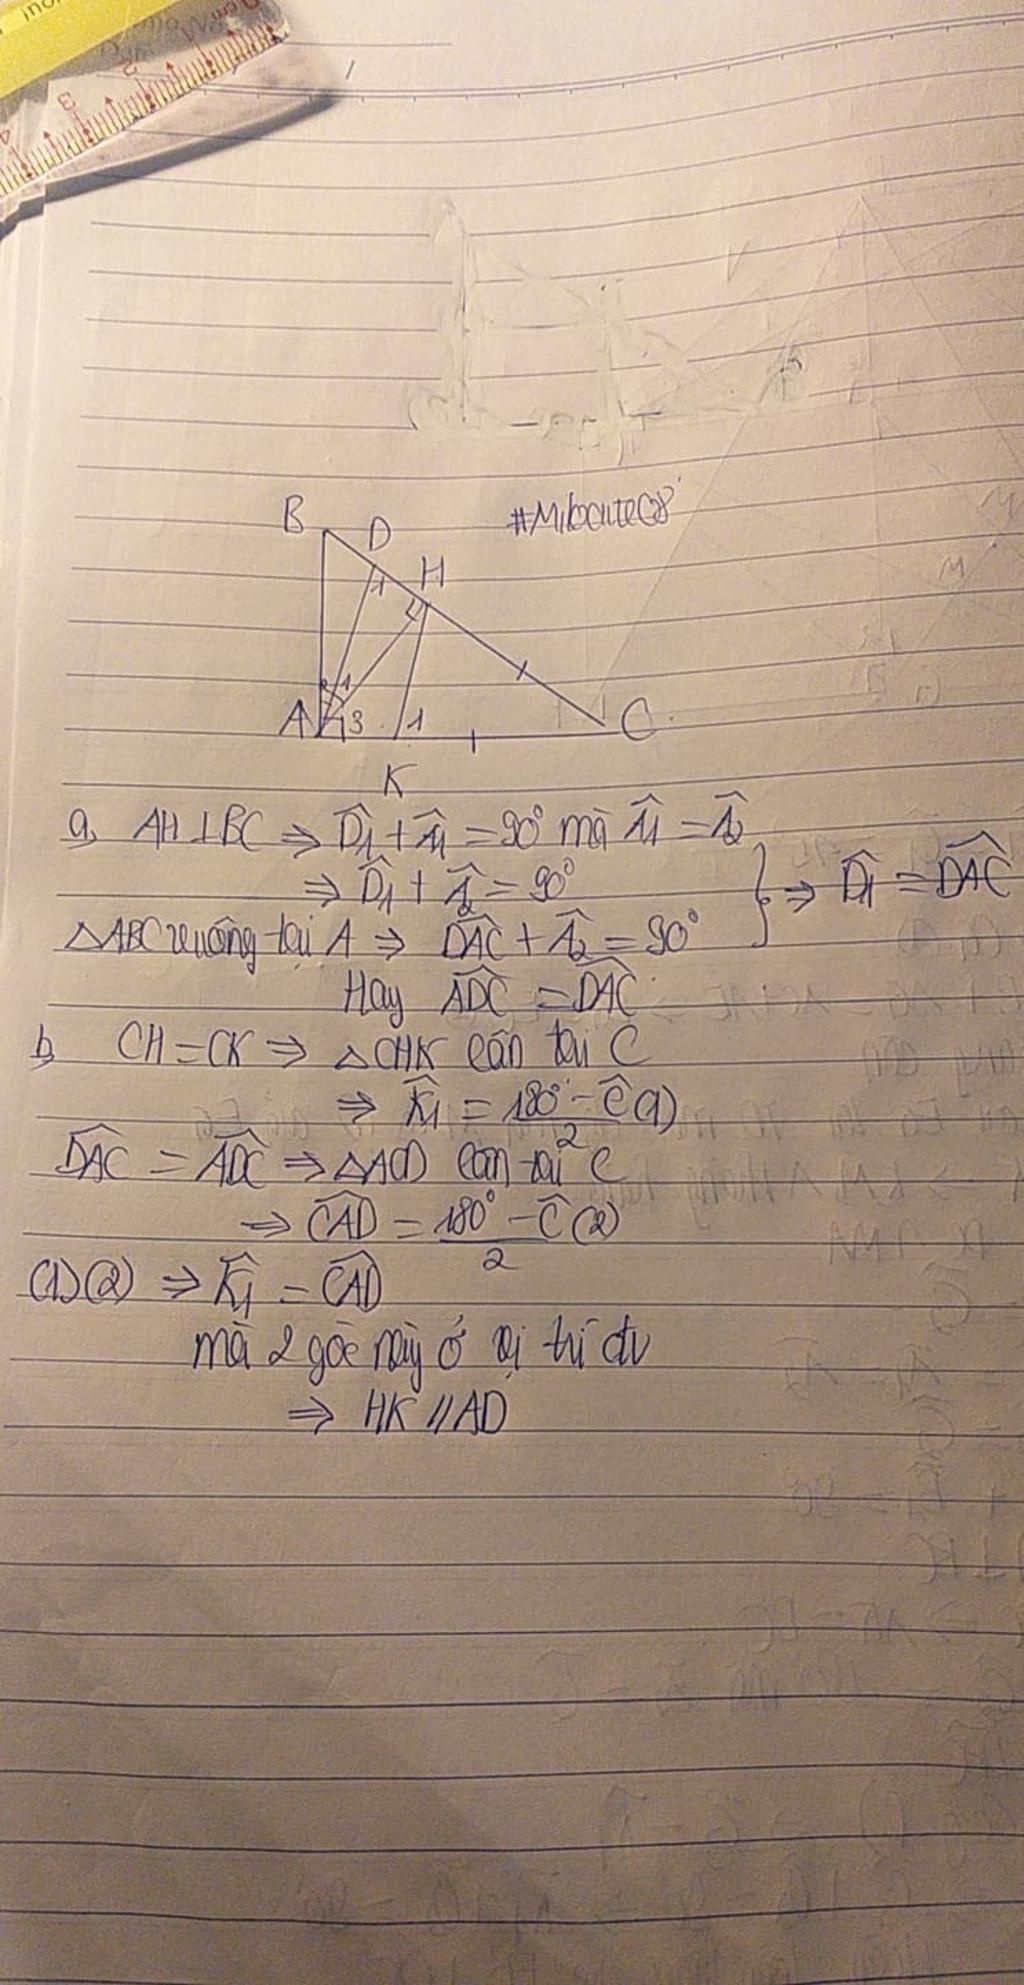 #Mibcute08
B
D
H
1
1
A
3
1
C
K
a, AH ⊥ BC ⇒ D̂1 + Â1 = 90° mà Â1 = Â2
⇒ D̂1 + Â2 = 90°
⇒ D̂1 = DAC
△ABC vuông tại A ⇒ DAC + Â2 = 90°
Hay ADC = DAC
b, CH = CK ⇒ △CHK cân tại C
⇒ K̂1 = 180° - Ĉ (1)
2
DAC = ADC ⇒ △ACD cân tại C
⇒ CAD = 180° - Ĉ (2)
2
(1)(2) ⇒ K̂1 = CAD
mà 2 góc này ở vị trí đv
⇒ HK // AD